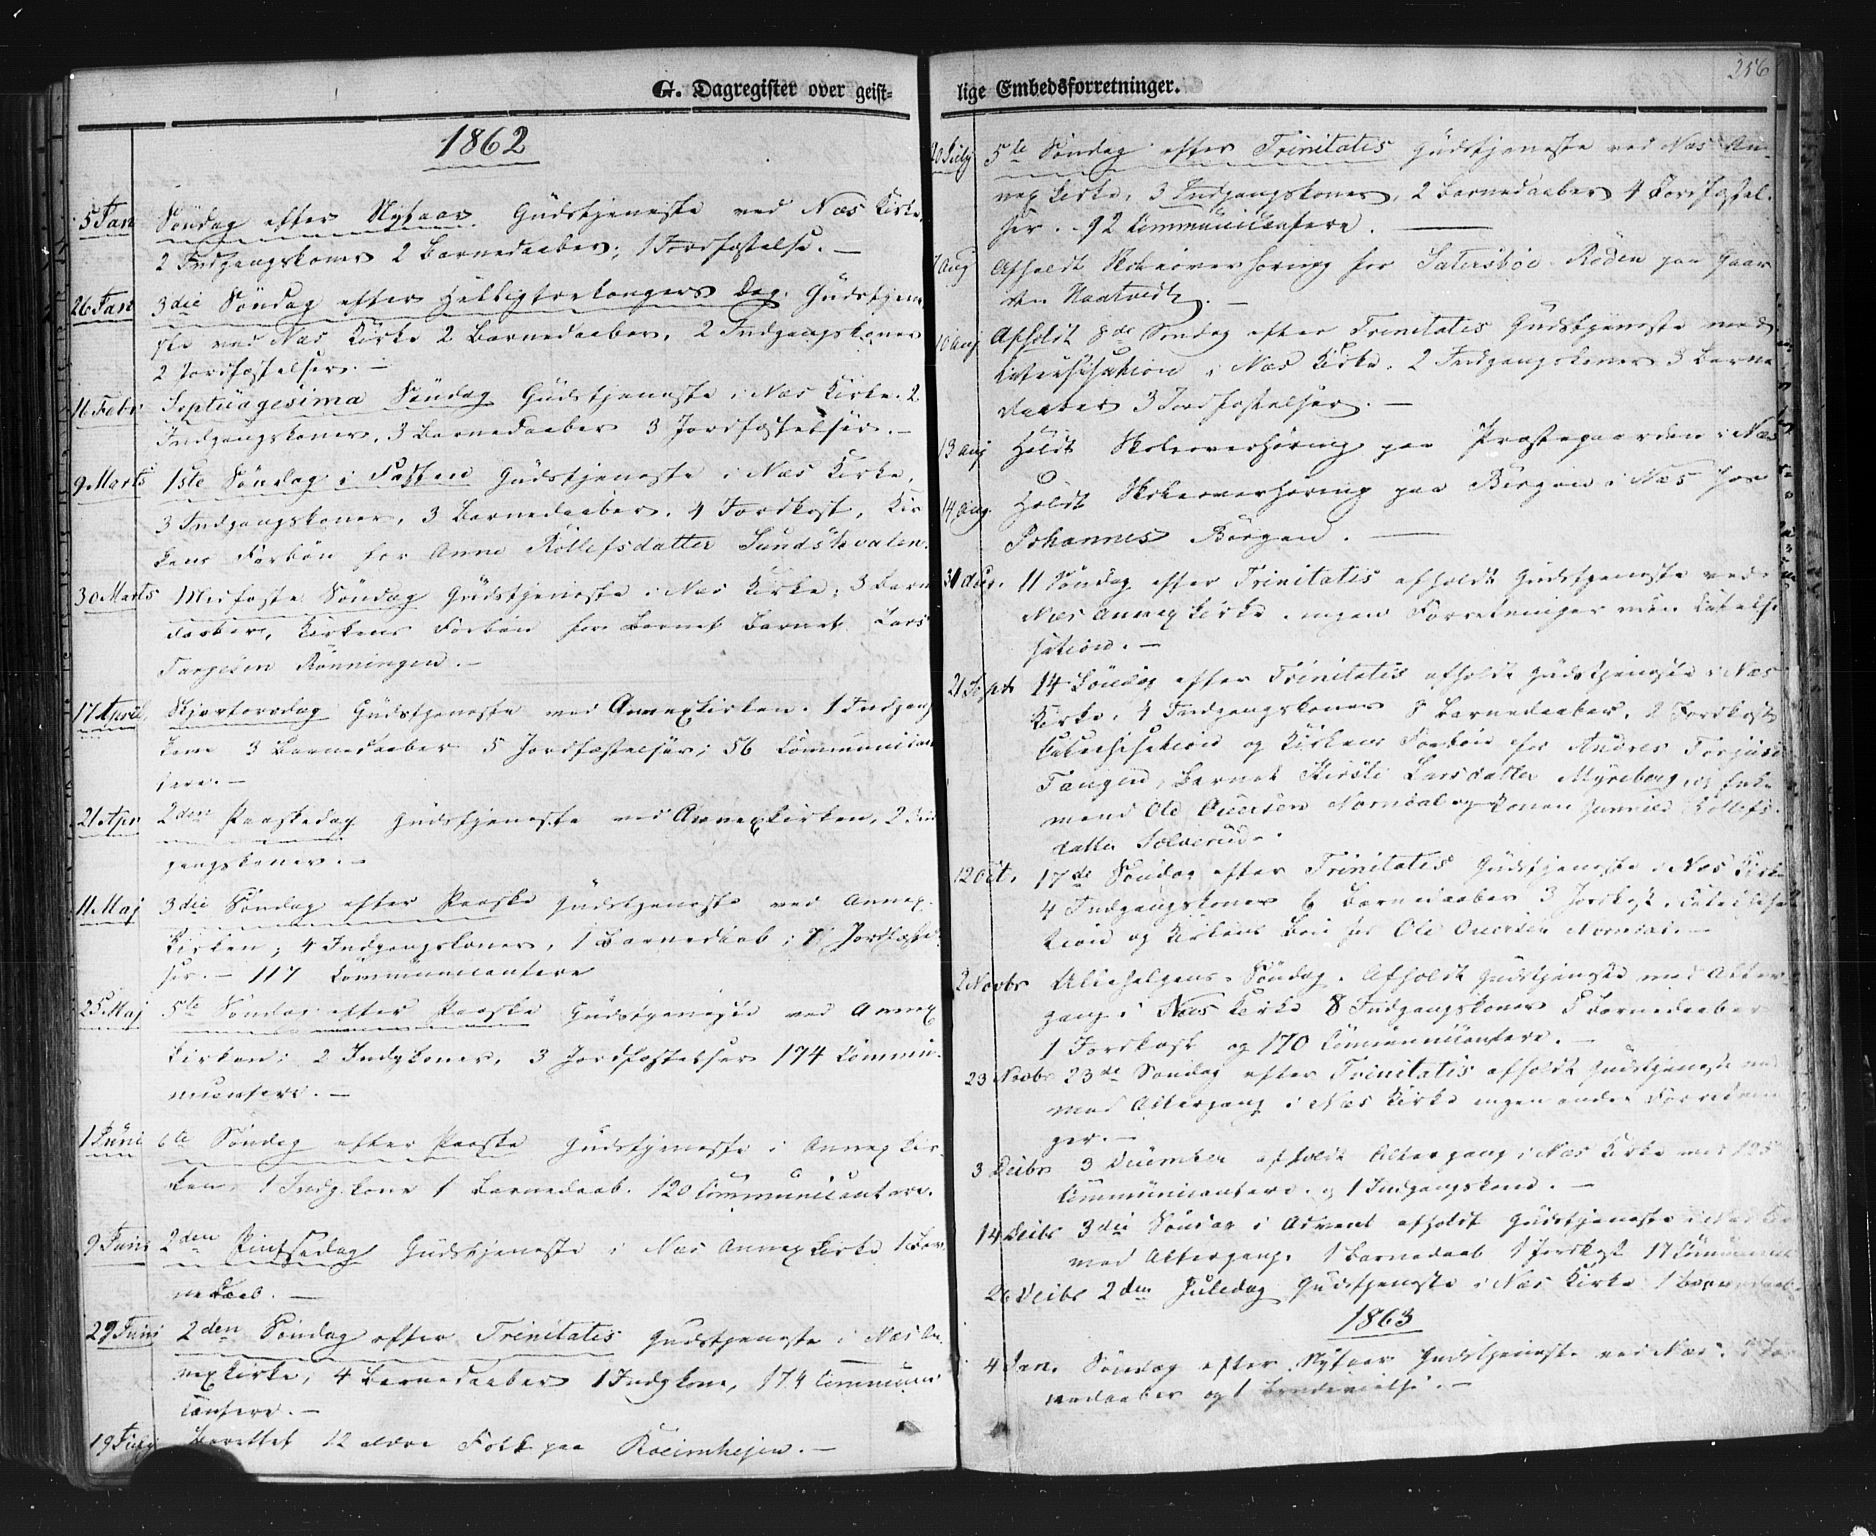 G. Dagregister over geist-
1862
5 Jan Söndag efter Nytaar. Gudstjeneste ved Næs Kirke.
2 Indgangskoner 2 Barnedaaber, 1 Jordfæstelse. —
26 Jan 3die Söndag efter Helligtrekongers Dag. Gudstjene
ste ved Næs Kirke 2 Barnedaaber, 2 Indgangskoner
2 Jordfæstelser. —
16 Febr Septuagesima Söndag Gudstjeneste i Næs Kirke. 2
Indgangskoner, 3 Barnedaaber 3 Jordfæstelser. —
9 Marts 1ste Söndag i Fasten Gudstjeneste i Næs Kirke,
3 Indgangskoner, 3 Barnedaaber. 4 Jordkast, Kir
kens Forbön for Anne Rollefsdatter Sundskvalen.
30 Marts Midfaste Söndag Gudstjeneste i Næs Kirke; 3 Barne
daaber, Kirkens Forbön for Barnet Barnet Lars
Tarjesen Rönningen. —
17 April Skjærtorsdag Gudstjeneste ved Annexkirken. 1 Indgangs
kone 3 Barnedaaber 5 Jordfæstelser; 56 Communican
tere. —
21 Apr 2den Paaskedag Gudstjeneste ved Annexkirken, 2 Ind
gangskoner. —
11 Maj 3die Söndag efter Paaske Gudstjeneste ved Annex
kirken; 4 Indgangskoner, 1 Barnedaab; Jordfæstel
ser. — 117 Communicantere
25 Maj 5te Söndag efter Paaske Gudstjeneste ved Annex
kirken: 2 Indgkoner, 3 Jordfæstelser 174 Commu-
nicantere. —
1 Juni 6te Söndag efter Paaske Gudstjeneste i Annexkir-
ken, 1 Indg.kone 1 Barnedaab. 120 Communicantere.
9 Juni 2den Pintsedag Gudstjeneste i Næs Annexkirke 1 Bar
nedaab. —
29 Juni 2den Söndag efter Trinitatis Gudstjeneste i Næs An
nexkirke, 4 Barnedaaber 1 Indgkone, 174 Communi
cantere. —
19 July Berettet 12 ældre Folk paa
lige Embedsforretninger.
256
20 July 5te Söndag efter Trinitatis Gudstjeneste ved Næs An-
nexkirke, 3 Indgangskoner, 2 Barnedaaber 4 Jordfæstel.
ser. 92 Communicantere. —
7 Aug Afholdt Skoleoverhöring for Satersböe Roden paa Gaar
den Haatvedt. —
10 Aug Afholdt 8de Söndag efter Trinitatis Gudstjeneste med
Catechisation i Næs Kirke. 2 Indgangskoner 3 Barne
daaber 3 Jordfæstelser. —
13 Aug Holdt Skoleoverhöring paa Præstegaarden i Næs
14 Aug. Holdt Skoleoverhöring paa Börgen i Næs hos
Johannes Börgen. —
31 Aug. 11 Söndag efter Trinitatis afholdt Gudstjeneste ved
Næs Annexkirke. ingen Forretninger men Catechi
sation. —
21 Sept 14 Söndag efter Trinitatis afholdt Gudstjeneste i Næs
Kirke, 4 Indgangskoner 8 Barnedaaber, 2 Jordkast
Catechisation og Kirkens Forbön for Andres
Tangen, Barnet Kirsti Larsdatter Myreberg, og
mand Ole Oversen Nomdal og Konen Gunild Rollefs-
datter
12 Oct. 17de Söndag efter Trinitatis Gudstjeneste i Næs Kirke
4 Indgangskoner 6 Barnedaaber 3 Jordkast. Catechisa
tion og Kirkens Bön for Ole Oversen Nomdal. —
2 Novbr Allehelgens-Söndag. Afholdt Gudstjeneste med Alter
gang i Næs Kirke 8 Indgangskoner 5 Barnedaaber
1 Jordkast og 170 Communicantere. —
23 Novbr 23de Söndag efter Trinitatis afholdt Gudstjeneste
med Altergang i Næs Kirke ingen andre Forretnin
ger. —
3 Decbr 3 December afholdt Altergang i Næs Kirke med 125
Communicantere. og 1 Indgangskone. —
14 Decbr 3die Söndag i Advent afholdt Gudstjeneste i Næs
med Altergang. 1 Barnedaab 1 Jordkast 17
26 Decbr 2den Juledag Gudstjeneste i Næs Kirke 1 Barnedaab.
1863
4 Jan. Söndag efter Nytaar Gudstjeneste ved Næs.
nedaaber og 1 Brudevielse. —